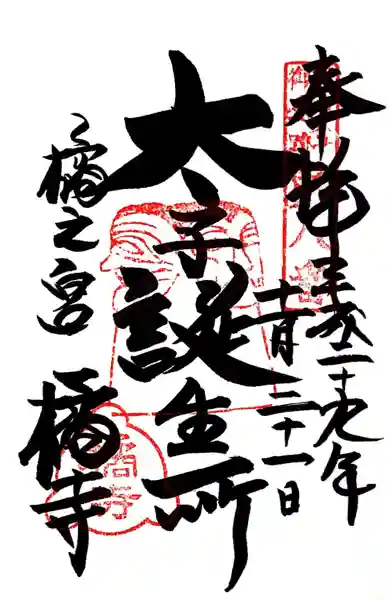 奉拝 平成二十九年
十一月二十一日
太子誕生所
橘之宮
橘寺